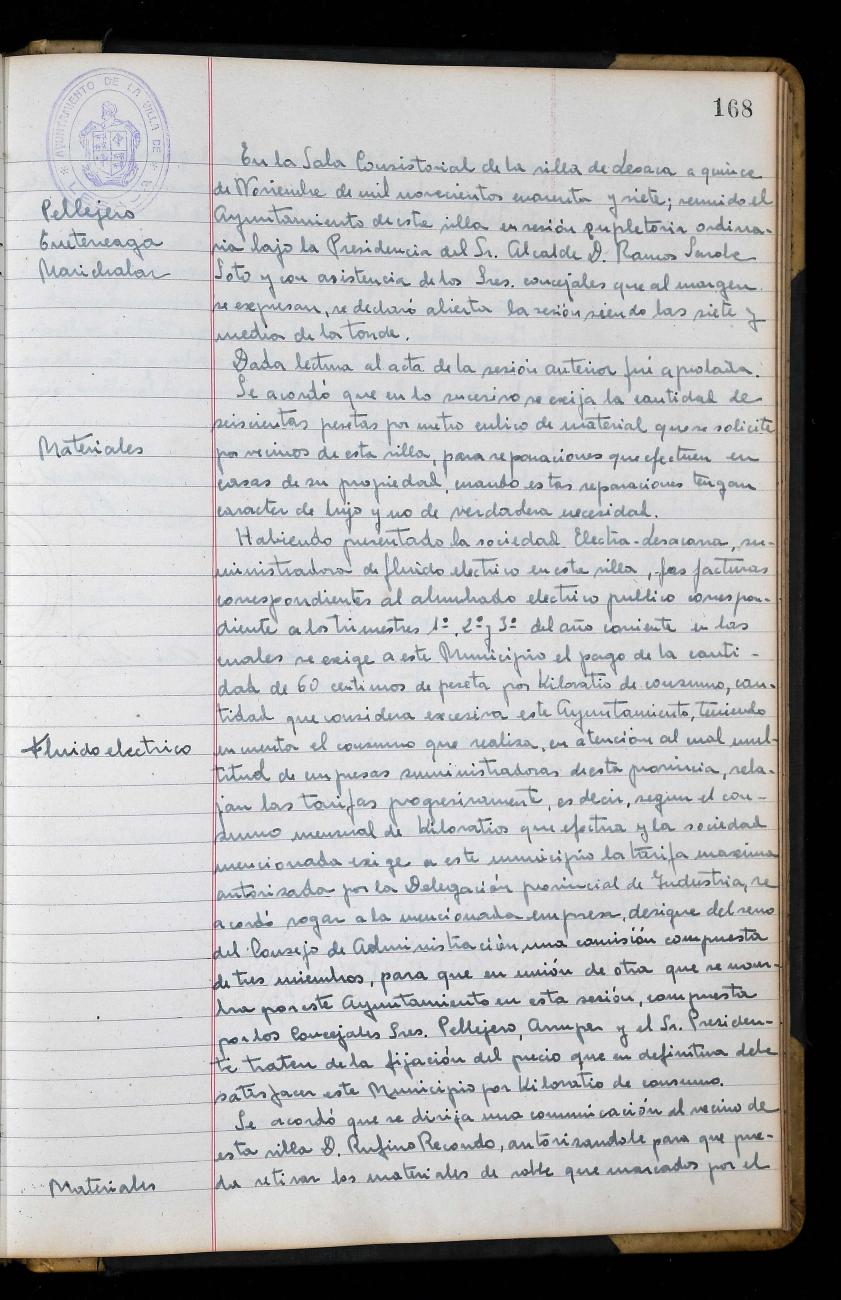 168
AYUNTAMIENTO DE LA VILLA DE
Pellejero
Eneteneaga
Marichalar
En la Sala Consistorial de la villa de Lesaca a quince
de Noviembre de mil novecientos cuarenta y siete; reunido el
Ayuntamiento de este villa en sesión supletoria ordina-
ria bajo la Presidencia del Sr. Alcalde D. Ramos
Soto y con asistencia de los Sres. concejales que al margen
se expresan, se declaró abierta la sesión siendo las siete y
media de la tarde.
Dada lectura al acta de la sesión anterior fué aprobada.
Materiales
Se acordó que en lo sucesivo se exija la cantidad de
seiscientas pesetas por metro cubico de material que se solicite
por vecinos de esta villa, para reparaciones que efectuen en
casas de su propiedad, cuando estas reparaciones tengan
caracter de lujo y no de verdadera necesidad.
Fluido electrico
Habiendo presentado la sociedad Electra-Lesacana, su-
ministradora de fluido electrico en esta villa, las facturas
correspondientes al alumbrado electrico publico correspon-
diente a los trimestres 1º, 2º y 3º del año corriente en las
cuales se exige a este Municipio el pago de la canti-
dad de 60 centimos de peseta por Kilovatio de consumo, can-
tidad que considera excesiva este Ayuntamiento, teniendo
en cuenta el consumo que realiza, en atención al cual mul-
titud de empresas suministradoras de esta provincia, reba-
jan las tarifas progresivamente, es decir, segun el con-
sumo mensual de Kilovatios que efectua y la sociedad
mencionada exige a este municipio la tarifa maxima
autorizada por la Delegación provincial de Industria, se
acordó rogar a la mencionada empresa, designe del seno
del Consejo de Administración, una comisión compuesta
de tres miembros, para que en unión de otra que se nom-
bra por este Ayuntamiento en esta sesión, compuesta
por los Concejales Sres. Pellejero, y el Sr. Presiden-
te traten de la fijación del precio que en definitiva debe
satisfacer este Municipio por Kilovatio de consumo.
Materiales
Se acordó que se dirija una comunicación al vecino de
esta villa D. Rufino Recondo, autorizandole para que pue-
da retirar los materiales de roble que marcados por el